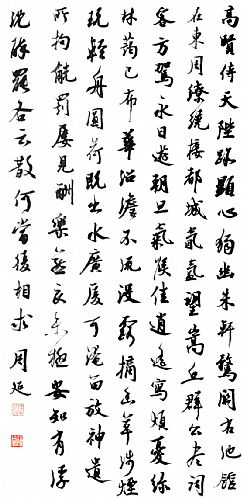 高賢侍天陛跡顯心獨幽朱軒騖關右池館
在東周繚繞接都城氤氳望嵩丘群公盡詞
客方駕永日遊朝旦氣候佳逍遙寫煩憂綠
林藹已布華沼澹不流沒露摘幽草涉煙
玩輕舟圓荷既出水廣廈可淹留放神遺
所拘觥罰屢見酬樂燕良未極安知有浮
沈醉罷各云散何當復相求 周延